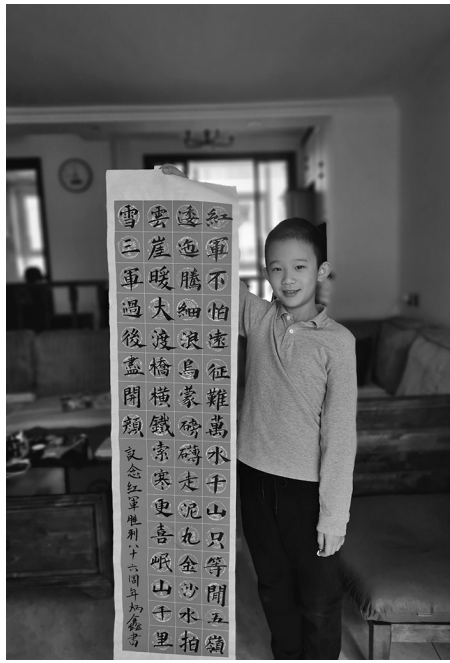 紅軍不怕遠征難萬水千山只等閒五嶺
逶迤騰細浪烏蒙磅礴走泥丸金沙水拍
雲崖暖大渡橋橫鐵索寒更喜岷山千里
雪三軍過後盡開顏
記念紅軍胜利八十六周年炳鑫書